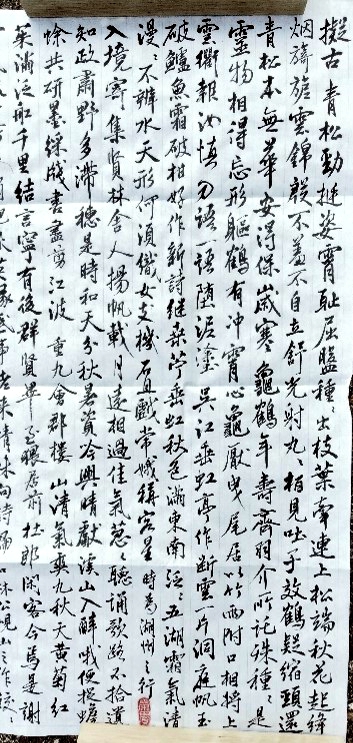 擬古 青松勁挺姿霄恥屈盤種々出枝葉牽連上松端秋花起絳
烟旖旎雲錦殷不羞不自立舒光射丸々柏見吐子效鶴疑縮頸還
青松本無華安得保歲寒 龜鶴年壽齊羽介所託殊種々是
靈物相得忘形軀鶴有沖霄心龜厭曳尾居以竹兩附口相將上
雲衢報汝慎勿語一語墮泥塗 吳江垂虹亭作 斷雲一片洞庭帆玉
破鱸魚霜破柑好作新詩繼桑苧垂虹秋色滿東南 泛々五湖霜氣清
漫々不辨水天形何須織女支機石且戲常娥稱客星 時為湖州之行
入境寄集賢林舍人 揚帆載月遠相過佳氣蔥々聽誦歌路不拾遺
知政肅野多滯穗是時和天分秋暑資吟興晴獻溪山入醉哦便捉蟾
蜍共研墨綵牋書盡剪江波 重九會郡樓 山清氣爽九秋天黃菊紅
茱滿泛船千里結言寧有後群賢畢至猥居前杜郎閒客今焉是謝